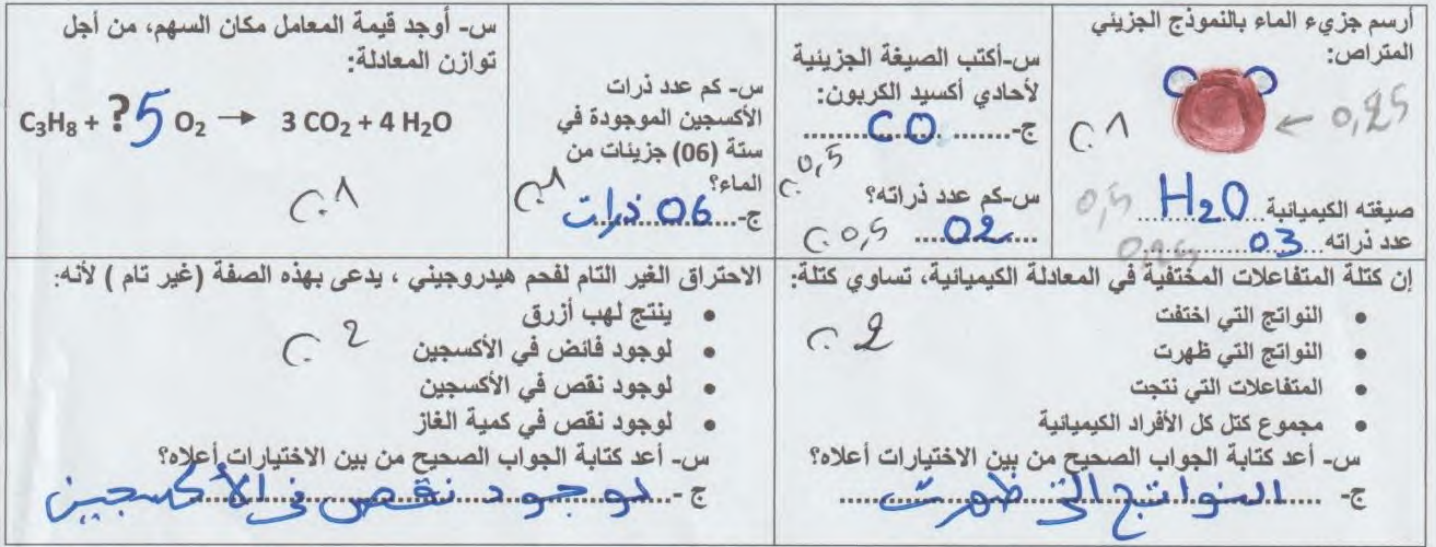 أرسم جزيء الماء بالنموذج الجزيئي
المتراص:
0,25
ن1
صيغته الكيميائية H2O 0,5
عدد ذراته 03 0,25
س-أكتب الصيغة الجزيئية
لأحادي أكسيد الكربون:
ج- CO
ن0,5
س-كم عدد ذراته؟
02 ن0,5
س- كم عدد ذرات
الأكسجين الموجودة في
ستة (06) جزيئات من
الماء؟ ن1
ج- 06 ذرات
س- أوجد قيمة المعامل مكان السهم، من أجل
توازن المعادلة:
C3H8 + ?5 O2 → 3 CO2 + 4 H2O
ن1
إن كتلة المتفاعلات المختفية في المعادلة الكيميائية، تساوي كتلة:
• النواتج التي اختفت
ن2
• النواتج التي ظهرت
• المتفاعلات التي نتجت
• مجموع كتل كل الأفراد الكيميائية
س- أعد كتابة الجواب الصحيح من بين الاختيارات أعلاه؟
ج- النواتج التي ظهرت
الاحتراق الغير التام لفحم هيدروجيني ، يدعى بهذه الصفة (غير تام ) لأنه:
• ينتج لهب أزرق
• لوجود فائض في الأكسجين ن2
• لوجود نقص في الأكسجين
• لوجود نقص في كمية الغاز
س- أعد كتابة الجواب الصحيح من بين الاختيارات أعلاه؟
ج- لوجود نقص في الأكسجين